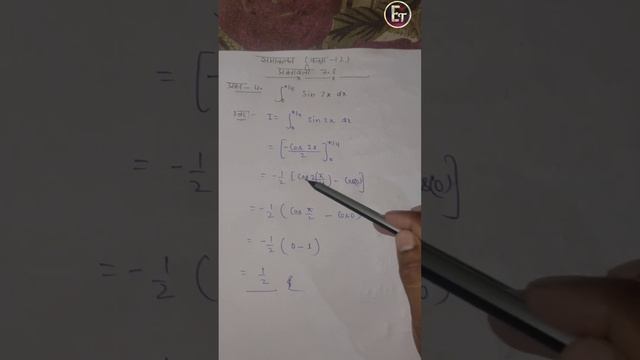 ET
समाकलन (कक्षा -12)
प्रश्नावली 7.8
प्रश्न - 4. ∫₀^π/4 sin 2x dx
हल:- I = ∫₀^π/4 sin 2x dx
= [-cos 2x / 2]₀^π/4
= -1/2 [cos 2(π/ ) - cos(0)]
= -1/2 (cos π/2 - cos 0)
= -1/2 (0 - 1)
= 1/2